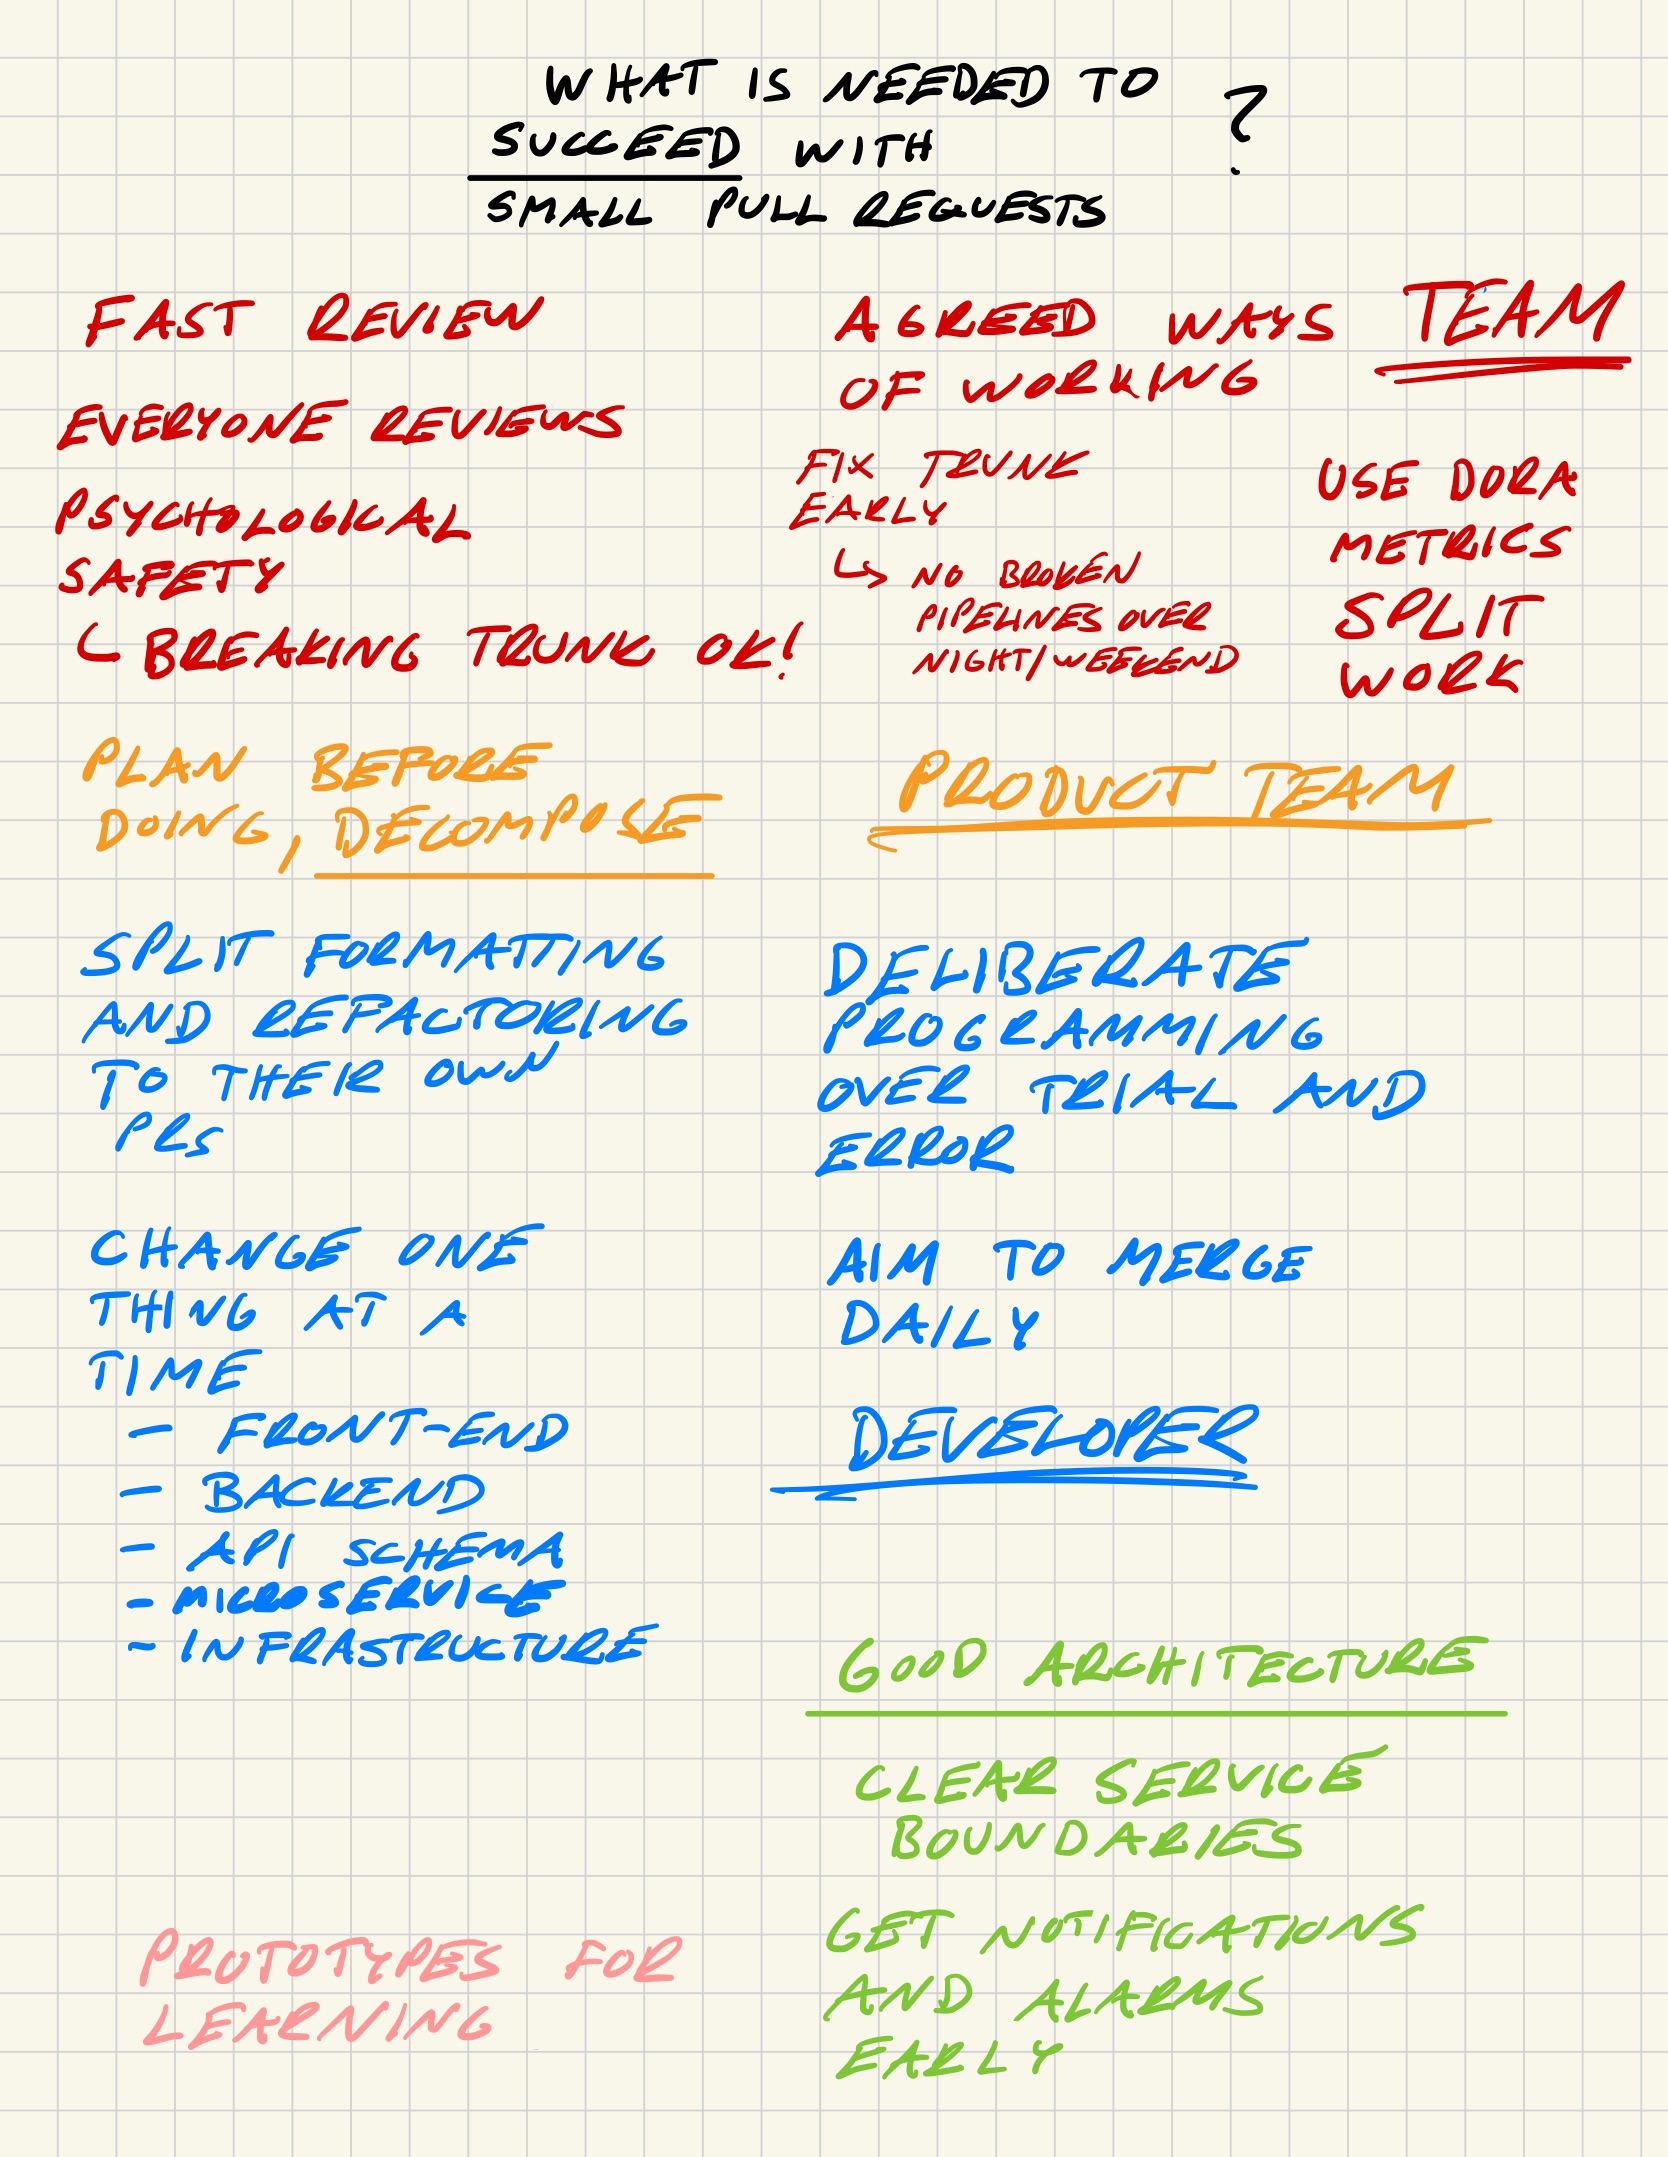 WHAT IS NEEDED TO
SUCCEED WITH ?
SMALL PULL REQUESTS
FAST REVIEW
EVERYONE REVIEWS
PSYCHOLOGICAL
SAFETY
↳ BREAKING TRUNK OK!
AGREED WAYS
OF WORKING
FIX TRUNK
EARLY
↳ NO BROKEN
PIPELINES OVER
NIGHT/WEEKEND
TEAM
USE DORA
METRICS
SPLIT
WORK
PLAN BEFORE
DOING, DECOMPOSE
PRODUCT TEAM
SPLIT FORMATTING
AND REFACTORING
TO THEIR OWN
PRS
CHANGE ONE
THING AT A
TIME
- FRONT-END
- BACKEND
- API SCHEMA
- MICROSERVICE
- INFRASTRUCTURE
DELIBERATE
PROGRAMMING
OVER TRIAL AND
ERROR
AIM TO MERGE
DAILY
DEVELOPER
GOOD ARCHITECTURE
CLEAR SERVICE
BOUNDARIES
GET NOTIFICATIONS
AND ALARMS
EARLY
PROTOTYPES FOR
LEARNING